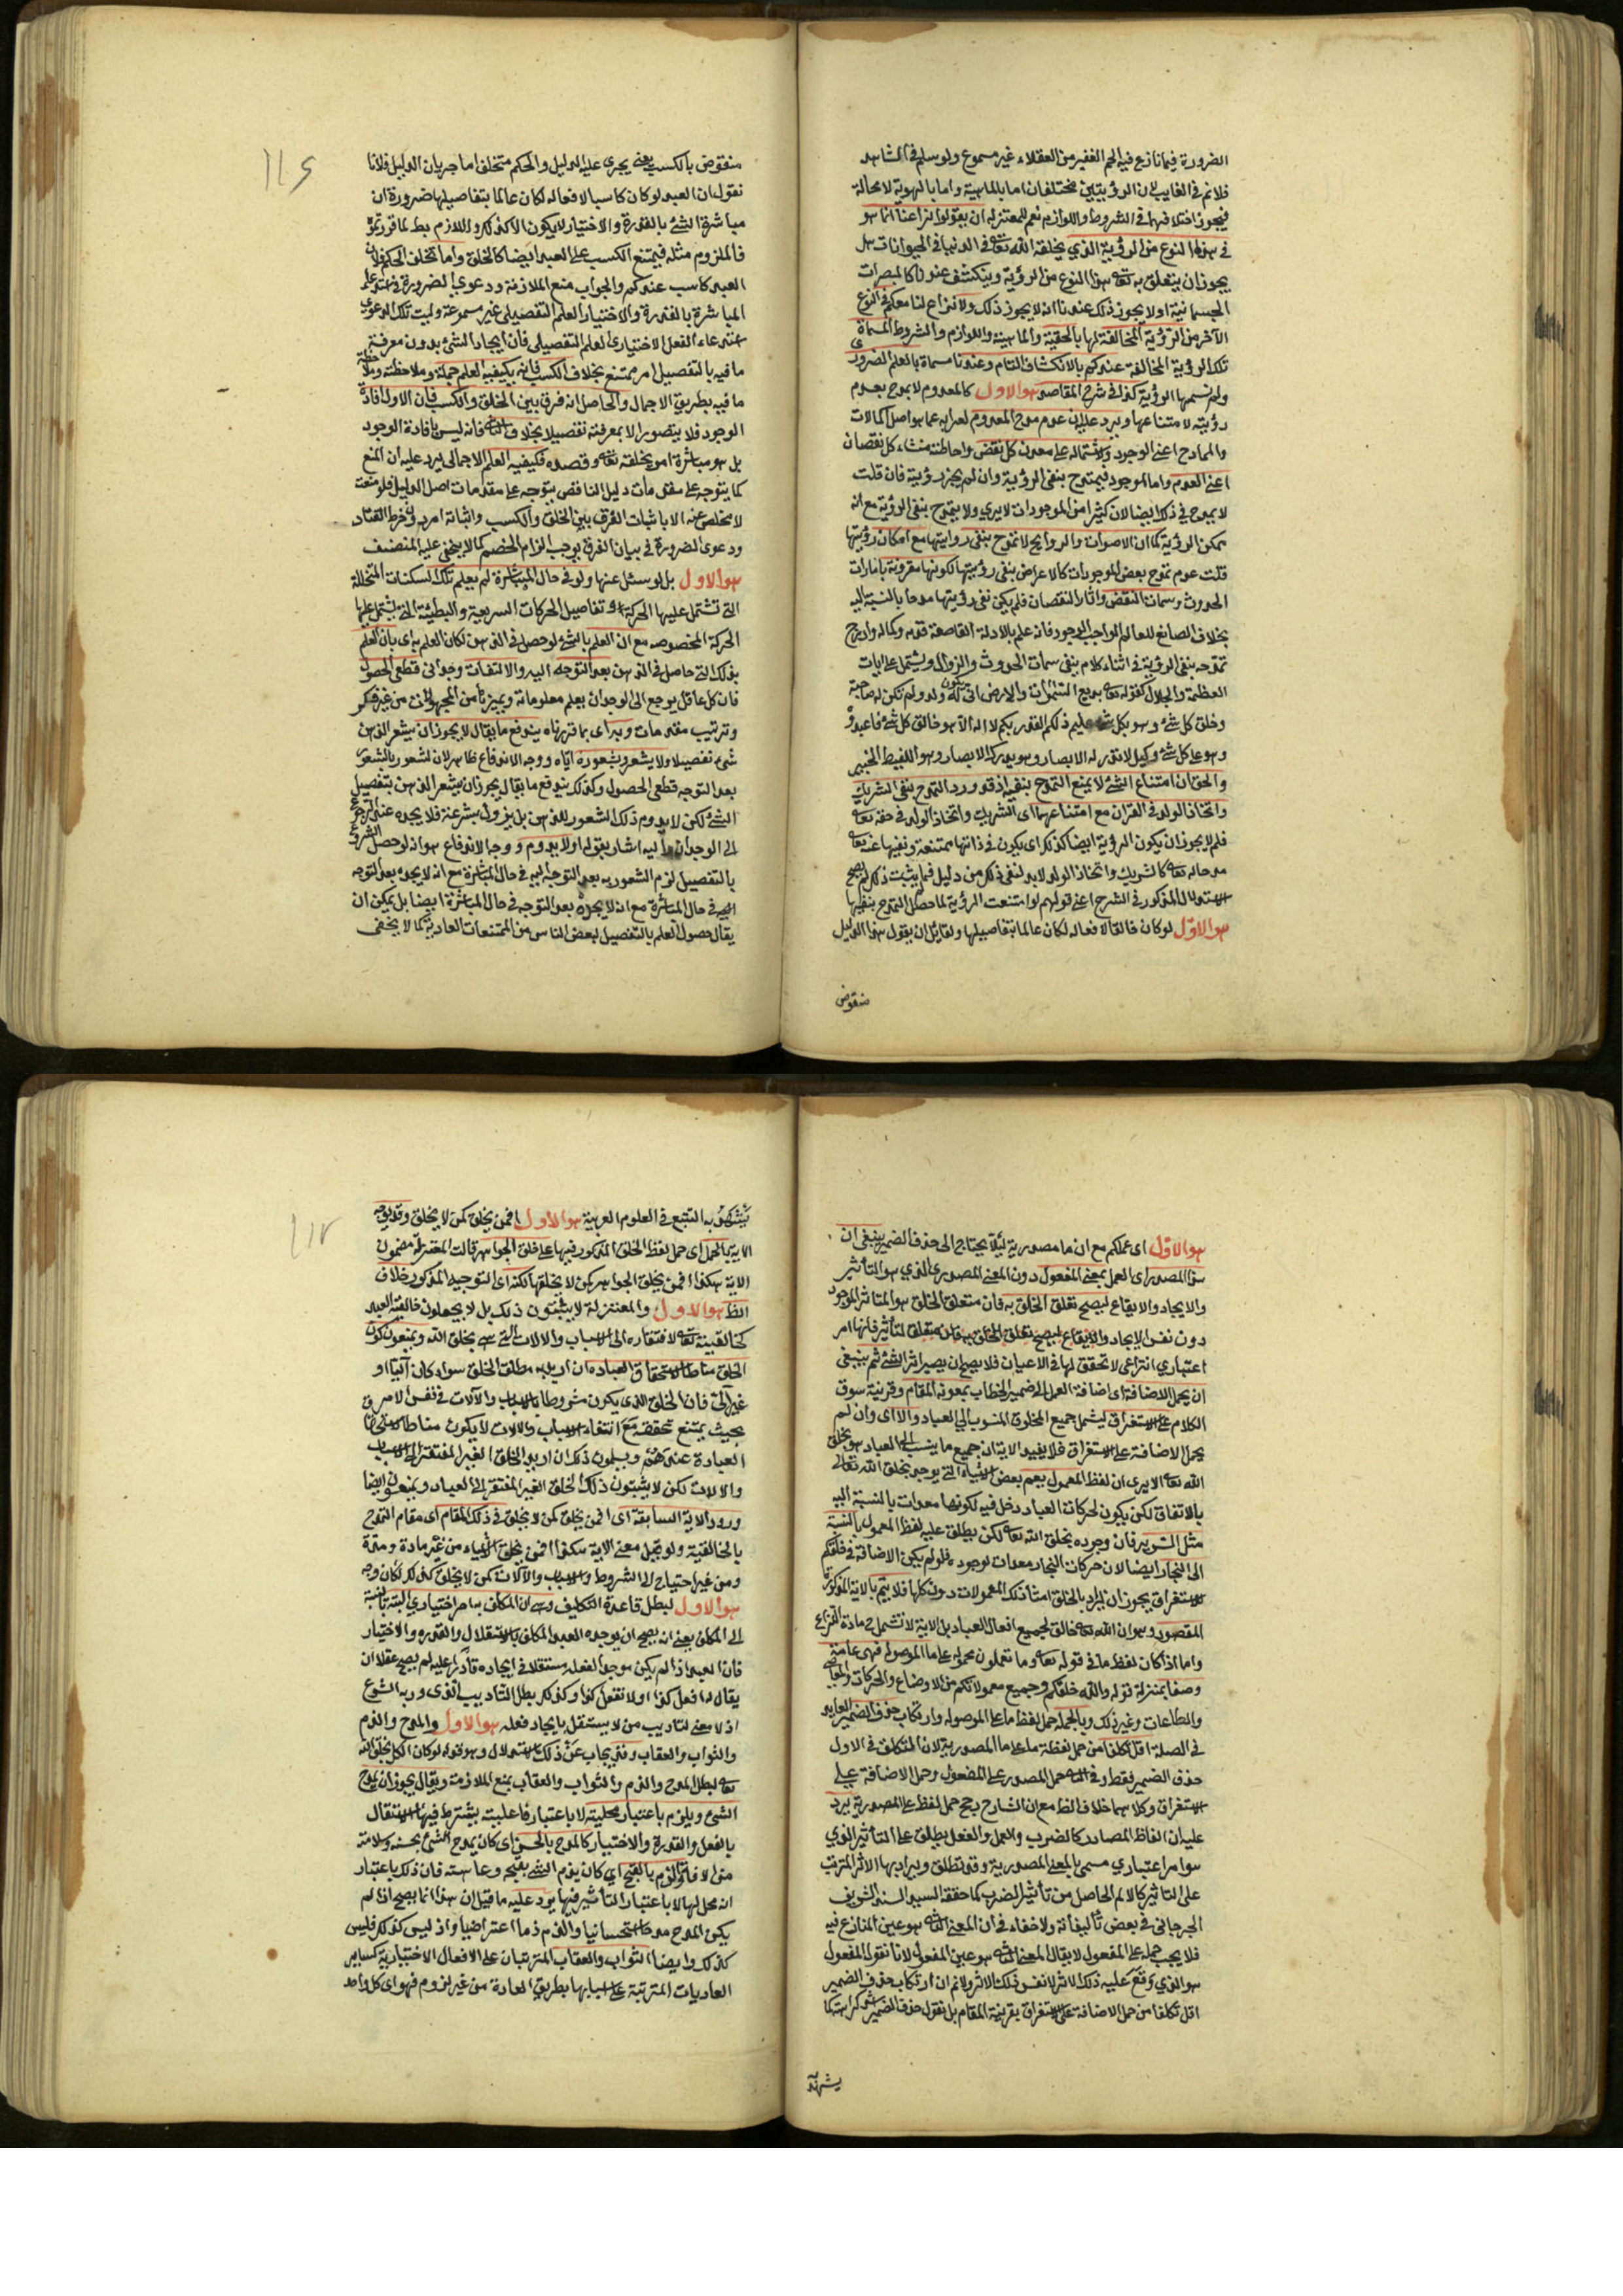 الضرورة فيما نازع فيه الجم الغفير من العقلاء غير مسموع ولو سلم في الشاهد
فلا نم في الغايب لان الرؤيتين مختلفتان اما بالماهية واما بالهوية لا محالة
فيجوز اختلافهما في الشروط واللوازم نعم للمعتزلة ان يقولوا نزاعنا انما هو
في هذا النوع من الرؤية الذي يخلقه الله تعالى في الدنيا في الحيوانات هل
يجوز ان يتعلق به تعالى هذا النوع من الرؤية وينكشف عندنا كالمبصرات
الجسمانية اولا يجوز ذلك عندنا انه لا يجوز ذلك ولا نزاع لنا معكم في النوع
الآخر من الرؤية المخالفة لها بالحقيقة والماهية واللوازم والشروط المسماة
تلك الرؤية المخالفة عندكم بالانكشاف التام وعندنا مسماة بالعلم الضروري
ولم نسمها الرؤية كذا في شرح المقاصد هو الاول كالمعدوم لا يمدح بعدم
رؤيته لامتناعها ويرد عليه ان عدم مدح المعدوم لعرائه عما هو اصل الكمالات
والممادح اعني الوجود ولاشتماله على معدن كل نقص واحاطته منشاء كل نقصان
اعني العدم واما الموجود فيمتدح بنفي الرؤية وان لم يجز رؤيته فان قلت
لا يمدح في ذلك ايضا لان كثيرا من الموجودات لا يرى ولا يتمدح بنفي الرؤية مع انه
يمكن الرؤية كما ان الاصوات والروايح لا تمدح بنفي رؤيتها مع امكان رؤيتها
قلت عدم تمدح بعض الموجودات كالاعراض بنفي رؤيتها لكونها مقرونة بامارات
الحدوث وسمات النقض واثار النقصان فلم يكن نفي رؤيتها مدحا بالنسبة اليه
بخلاف الصانع للعالم الواجب الوجود فانه علم بالادلة القاطعة قدمه وكماله وادرج
تمدحه بنفي الرؤية في اثناء كلام بنفي سمات الحدوث والزوال ويشتمل على ايات
العظمة والجلال كقوله تعالى بديع السموات والارض انى يكون له ولد ولم تكن له صاحبة
وخلق كل شئ وهو بكل شئ عليم ذلكم الله ربكم لا اله الا هو خالق كل شئ فاعبدوه
وهو على كل شئ وكيل لا تدركه الابصار وهو يدرك الابصار وهو اللطيف الخبير
والحق ان امتناع الشئ لا يمنع التمدح بنفيه اذ قد ورد التمدح بنفي الشريك
واتخاذ الولد في القران مع امتناعهما اى الشريك واتخاذ الولد في حقه تعالى
فلم لا يجوز ان يكون الرؤية ايضا كذلك اى يكون في ذاتها ممتنعة ونفيها عنه تعالى
مدحا له تعالى كالشريك واتخاذ الولد لابد لنفي ذلك من دليل فما لم يثبت ذلك لم يصح
الاستدلال المذكور في الشرح اعني قولهم لو امتنعت الرؤية لما حصل التمدح بنفيها
هو الاول لو كان خالقا لافعاله لكان عالما بتفاصيلها ولقائل ان يقول هذا الدليل
منقوض
منقوض بالكسب يعني يجرى عليه الدليل والحكم متخلف اما جريان الدليل فلانا
نقول ان العبد لو كان كاسبا لافعاله لكان عالما بتفاصيلها ضرورة ان
مباشرة الشئ بالقدرة والاختيار لا يكون الا كذلك واللازم بط لما قررتموه
فالملزوم مثله فيمتنع الكسب على العبد ايضا كالخلق واما تخلف الحكم فلان
العبد كاسب عندكم والجواب منع الملازمة ودعوى الضرورة في استدعاء
المباشرة بالقدرة والاختيار العلم التفصيلي غير مسموعة وليست تلك الدعوى
استدعاء الفعل الاختيارى العلم التفصيلي فان ايجاد الشئ بدون معرفة
ما فيه بالتفصيل امر ممتنع بخلاف الكسب فانه يكفيه العلم جملة وملاحظته
ما فيه بطريق الاجمال والحاصل انه فرق بين الخلق والكسب فان الاول افادة
الوجود فلا يتصور الا بمعرفته تفصيلا بخلاف الثانى فانه ليس بافادة الوجود
بل هو مباشرة امر يخلقه تعالى وقصده فيكفيه العلم الاجمالى يرد عليه ان المنع
كما يتوجه على مقدمات دليل الناقض يتوجه على مقدمات اصل الدليل فلو منعت
لا مخلص عنه الا باثبات الفرق بين الخلق والكسب واثباته امر دونه خرط القتاد
ودعوى الضرورة في بيان الفرق يوجب الزام الخصم كما لا يخفى على المنصف
هو الاول بل لو سئل عنها ولو في حال المباشرة لم يعلم تلك السكنات المتخللة
التي تشتمل عليها الحركة او تفاصيل الحركات السريعة والبطيئة التي يشتمل عليها
الحركة المخصوصة مع ان العلم بالشئ لو حصل في الذهن لكان العلم به اى بان العلم
بذلك الشئ حاصل في الذهن بعد التوجه اليه والالتفات وجداني قطعي الحصول
فان كل عاقل يرجع الى الوجدان يعلم معلوماته ويميزها من المجهولات من غير فكر
وترتيب مقدمات وبداى بما قررناه يندفع ما يقال لا يجوز ان يشعر الذهن
شئ تفصيلا ولا يشعر بشعوره اياه ووجه الاندفاع ظاهر لان الشعور بالشعور
بعد التوجه قطعي الحصول وكذلك يندفع ما يقال يجوز ان يشعر الذهن بتفصيل
الشئ لكن لا يدوم ذلك الشعور للذهن بل يزول بسرعة فلا يجده عند الرجوع
الى الوجدان واليه اشار بقوله اولا يدوم ووجه الاندفاع هو انه لو حصل الشعور
بالتفصيل لزم الشعور به بعد التوجه اليه في حال المباشرة مع انه لا يجده بعد التوجه
اليه في حال المباشرة مع انه لا يجده بعد التوجه في حال المباشرة ايضا بل يمكن ان
يقال حصول العلم بالتفصيل لبعض الناس من الممتنعات العادية كما لا يخفى
هو الاول اى عملكم مع ان ما مصدرية لئلا يحتاج الى حذف الضمير ينبغي ان
هذا المصدر اى العمل بمعنى المفعول دون المعنى المصدرى الذي هو التأثير
والايجاد والايقاع ليصح تعلق الخلق به فان متعلق الخلق هو المتاثر الموجود
دون نفس الايجاد والايقاع ليصح تعلق الخلق به فان متعلق التأثير فانها امر
اعتباري انتزاعي لا تحقق لها في الاعيان فلا يصح ان يصير اثر الشئ ثم ينبغي
ان يحمل الاضافة اى اضافة العمل الى ضمير الخطاب بمعونة المقام وقرينة سوق
الكلام على الاستغراق ليشمل جميع المخلوق المنسوب الى العباد والا اى وان لم
يحمل الاضافة على الاستغراق فلا يفيد الاية ان جميع ما ينسب الى العباد هو بخلق
الله تعالى الا يرى ان لفظ المعمول يعم بعض الاشياء التي يوجد بخلق الله تعالى
بالاتفاق لكن يكون لحركات العباد دخل فيه لكونها معدات بالنسبة اليه
مثل السرير فان وجوده بخلق الله تعالى لكن يطلق عليه لفظ المعمول بالنسبة
الى النجار ايضا لان حركات النجار معدات لوجوده فلو لم يكن الاضافة في خلقكم
للاستغراق يجوز ان يراد بالخلق امثال ذلك المعمولات دون كلها فلا يتم بالاية المذكورة
المقصود وهو ان الله تعالى خالق لجميع افعال العباد بل الاية لا تشمل مادة النزاع
واما اذا كان لفظ ما في قوله تعالى وما تعملون محمولة على ما الموصولة فهي عامة
وضعا بمنزلة قوله والله خلقكم وجميع معمولاتكم من الاوضاع والحركات والمعاصي
والطاعات وغير ذلك وبالجملة حمل لفظ ما على الموصولة وارتكاب حذف الضمير العايد
في الصلة اقل تكلفا من حمل لفظة ما على ما المصدرية لان التكلف في الاول
حذف الضمير فقط وفي الثانى حمل المصدر على المفعول وحمل الاضافة على
الاستغراق وكلاهما خلاف الظ مع ان الشارح رجح حمل لفظ على المصدرية يرد
عليه ان الفاظ المصادر كالضرب والعمل والفعل يطلق على التأثير الذي
هو امر اعتباري مسمى بالمعنى المصدرية وقد تطلق ويراد بها الاثر المترتب
على التاثير كالالم الحاصل من تأثير الضرب كما حققه السيد السند الشريف
الجرجانى في بعض تأليفاته ولا خفاء في ان المعنى الثانى هو عين المتنازع فيه
فلا يجب حمله على المفعول لا يقال المعنى الثانى هو عين المفعول لانا نقول المفعول
هو الذي وقع عليه ذلك الاثر لا نفس ذلك الاثر ولا نم ان ارتكاب حذف الضمير
اقل تكلفا من حمل الاضافة على الاستغراق بقرينة المقام بل نقول حذف الضمير
يشهد
يشهد به التتبع في العلوم العربية هو الاول افمن يخلق كمن لا يخلق وقد يوجه
الاية بالحمل اى حمل لفظ الخلق المذكور فيها على خلق الجواهر قالت المعتزلة مضمون
الاية هكذا افمن يخلق الجواهر كمن لا يخلقها لكنه اى التوجيه المذكور خلاف
الظ هو الاول والمعتزلة لا يثبتون ذلك بل لا يجعلون خالقية العبد
كخالقيته تعالى لافتقاره الى الاسباب والالات التي هي بخلق الله ويمنعون كون
الخلق مناط استحقاق العبادة ان اريد به مطلق الخلق سواء كان آليا او
غير آلي فان الخلق الذي يكون مشروطا بالاسباب والآلات في نفس الامر
بحيث يمتنع تحققه مع انتفاء الاسباب والالات لا يكون مناط استحقاق
العبادة عندهم ويسلمون ذلك ان اريد الخلق الغير المفتقر الى الاسباب
والالات لكن لا يثبتون ذلك الخلق الغير المفتقر الى العباد ويمنعون ايضا
ورود الاية السابقة اى افمن يخلق كمن لا يخلق في ذلك المقام اى مقام التمدح
بالخالقية ولو يحمل معنى الاية هكذا افمن يخلق الاشياء من غير مادة ومدة
ومن غير احتياج الى الشروط والاسباب والآلات كمن لا يخلق كذلك لكان وجه
هو الاول لبطل قاعدة التكليف وهى ان المكلف به امر اختياري البتة بالنسبة
الى المكلف يعني انه يصح ان يوجده العبد المكلف بالاستقلال والقدرة والاختيار
فان العبد اذا لم يكن موجدا لفعله مستقلا في ايجاده قادرا عليه لم يصح عقلا ان
يقال له افعل كذا اولا تفعل كذا وكذلك بطل التأديب الذى ورد به الشرع
اذ لا معنى لتاديب من لا يستقل بايجاد فعله هو الاول والمدح والذم
والثواب والعقاب وقد يجاب عن ذلك الاستدلال وهو قوله لو كان الكل بخلق الله
تعالى لبطل المدح والذم والثواب والعقاب بمنع الملازمة ويقال يجوز ان يمدح
الشئ ويلزم باعتبار محليته لا باعتبار فاعليته يشترط فيها الاستقلال
بالفعل والقدرة والاختيار كالمدح بالحسن اى كان يمدح الشئ بحسنه وسلامته
من الافة والذم بالقبح اي كان يذم الشئ بقبحه وعاهته فان ذلك باعتبار
انه محل لها لا باعتبار التأثير فيها يرد عليه ما قيل ان هذا انما يصح اذا لم
يكن المدح مدحا استحسانيا والذم ذما اعتراضيا واذ ليس كذلك فليس
كذلك وايضا الثواب والعقاب المترتبان على الافعال الاختيارية كساير
العاديات المترتبة على اسبابها بطريق العادة من غير لزوم فهو اى كل واحد